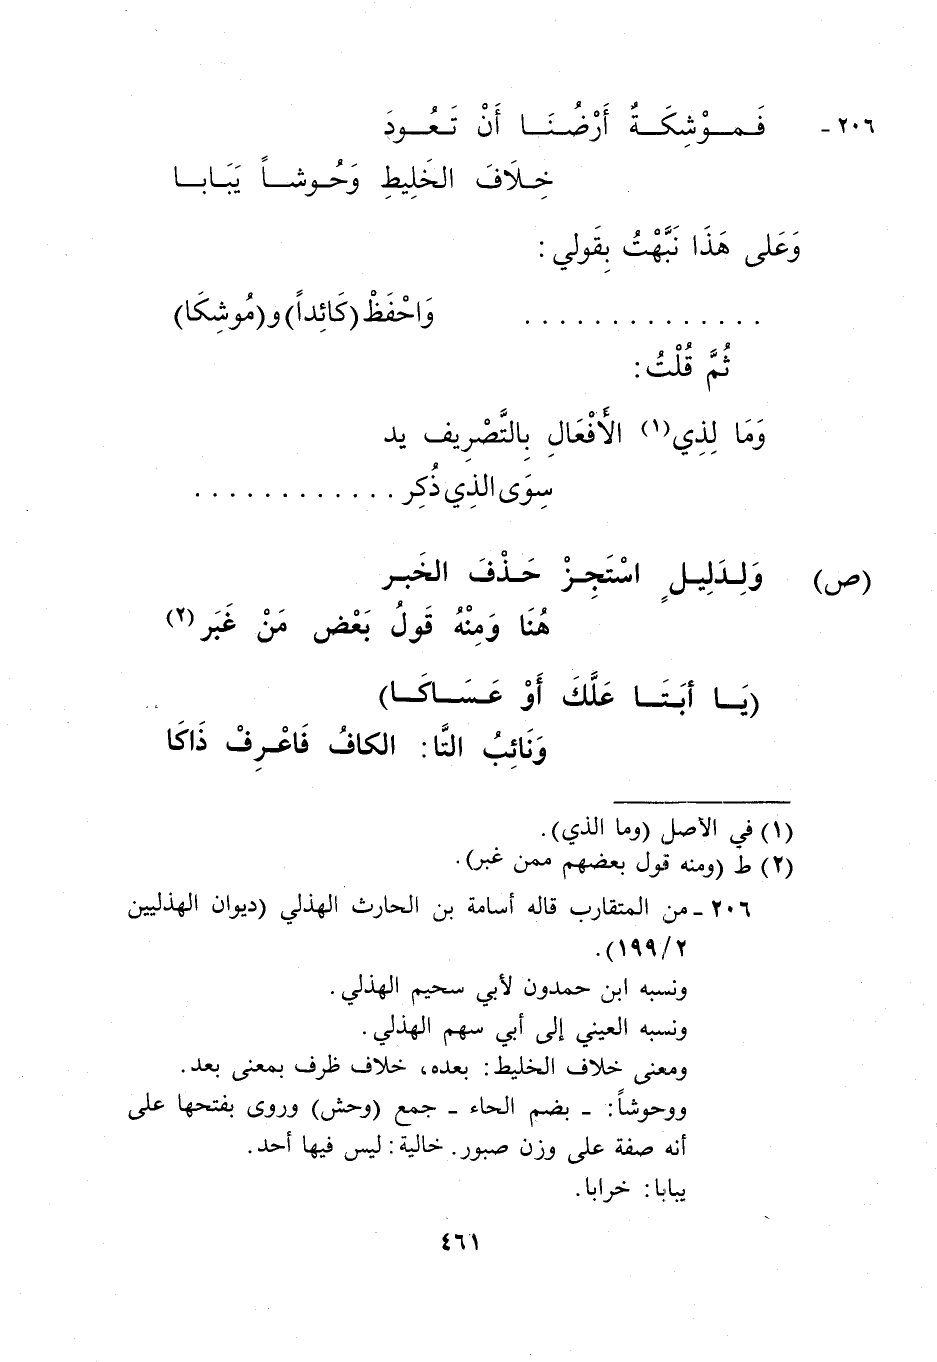 ٢٠٦ـ فَـمـوْشِكَـةٌ أَرْضُـنَـا أَنْ تَـعُـودَ
خِـلَافَ الخَلِيطِ وَحُـوشـاً يَبَـابـا
وَعَلى هَذَا نَبَّهْتُ بِقَولي :
. . . . . . . . . . . . . . وَاحْفَظْ (كَائِداً) و(مُوشِكَا)
ثُمَّ قُلْتُ :
وَمَا لِذِي(١) الأَفْعَالِ بِالتَّصْرِيف يد
سِوَى الذِي ذُكِر . . . . . . . . . . . .
(ص) وَلِـدَلِيـلٍ اسْتَجِـزْ حَـذْفَ الخَبـر
هُنَا وَمِنْهُ قَولُ بَعْض مَنْ غَبَر (٢)
(يَـا أبَتَـا عَلَّكَ أَوْ عَـسَـاكَـا)
وَنَائِبُ التَّا : الكافُ فَاعْـرِفْ ذَاكَا
(١) في الأصل (وما الذي).
(٢) ط (ومنه قول بعضهم ممن غبر).
٢٠٦ـ من المتقارب قاله أسامة بن الحارث الهذلي (ديوان الهذليين
٢/ ١٩٩).
ونسبه ابن حمدون لأبي سحيم الهذلي.
ونسبه العيني إلى أبي سهم الهذلي.
ومعنى خلاف الخليط: بعده، خلاف ظرف بمعنى بعد.
ووحوشاً: ـ بضم الحاء ـ جمع (وحش) وروى بفتحها على
أنه صفة على وزن صبور. خالية: ليس فيها أحد.
يبابا: خرابا.
٤٦١